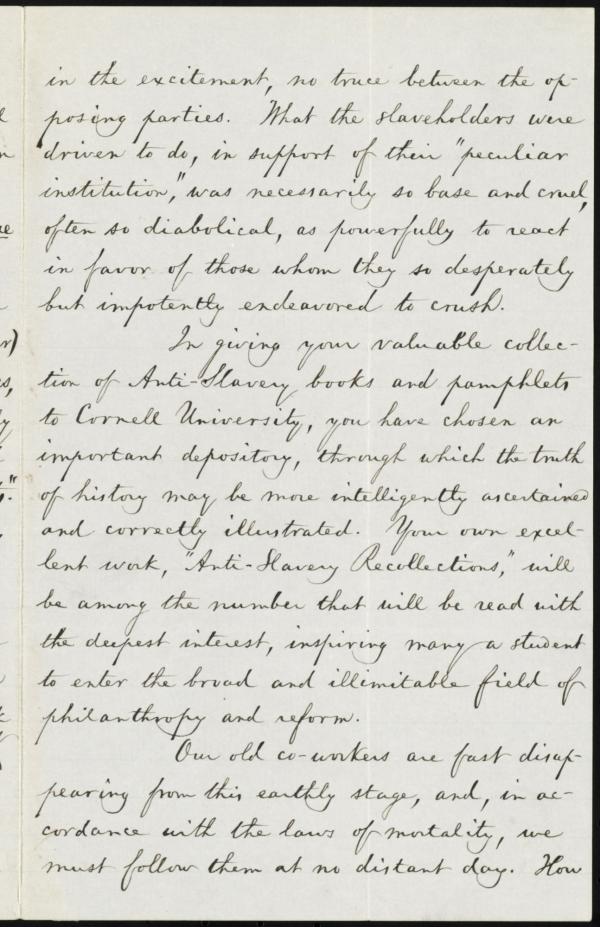 in the excitement, no truce between the op-
posing parties. What the slaveholders were
driven to do, in support of their "peculiar
institution," was necessarily so base and cruel,
often so diabolical, as powerfully to react
in favor of those whom they so desperately
but impotently endeavored to crush.
In giving your valuable collec-
tion of Anti-Slavery books and pamphlets
to Cornell University, you have chosen an
important depository, through which the truth
of history may be more intelligently ascertained
and correctly illustrated. Your own excel-
lent work, "Anti-Slavery Recollections," will
be among the number that will be read with
the deepest interest, inspiring many a student
to enter the broad and illimitable field of
philanthropy and reform.
Our old co-workers are fast disap-
pearing from this earthly stage, and, in ac-
cordance with the laws of mortality, we
must follow them at no distant day. How